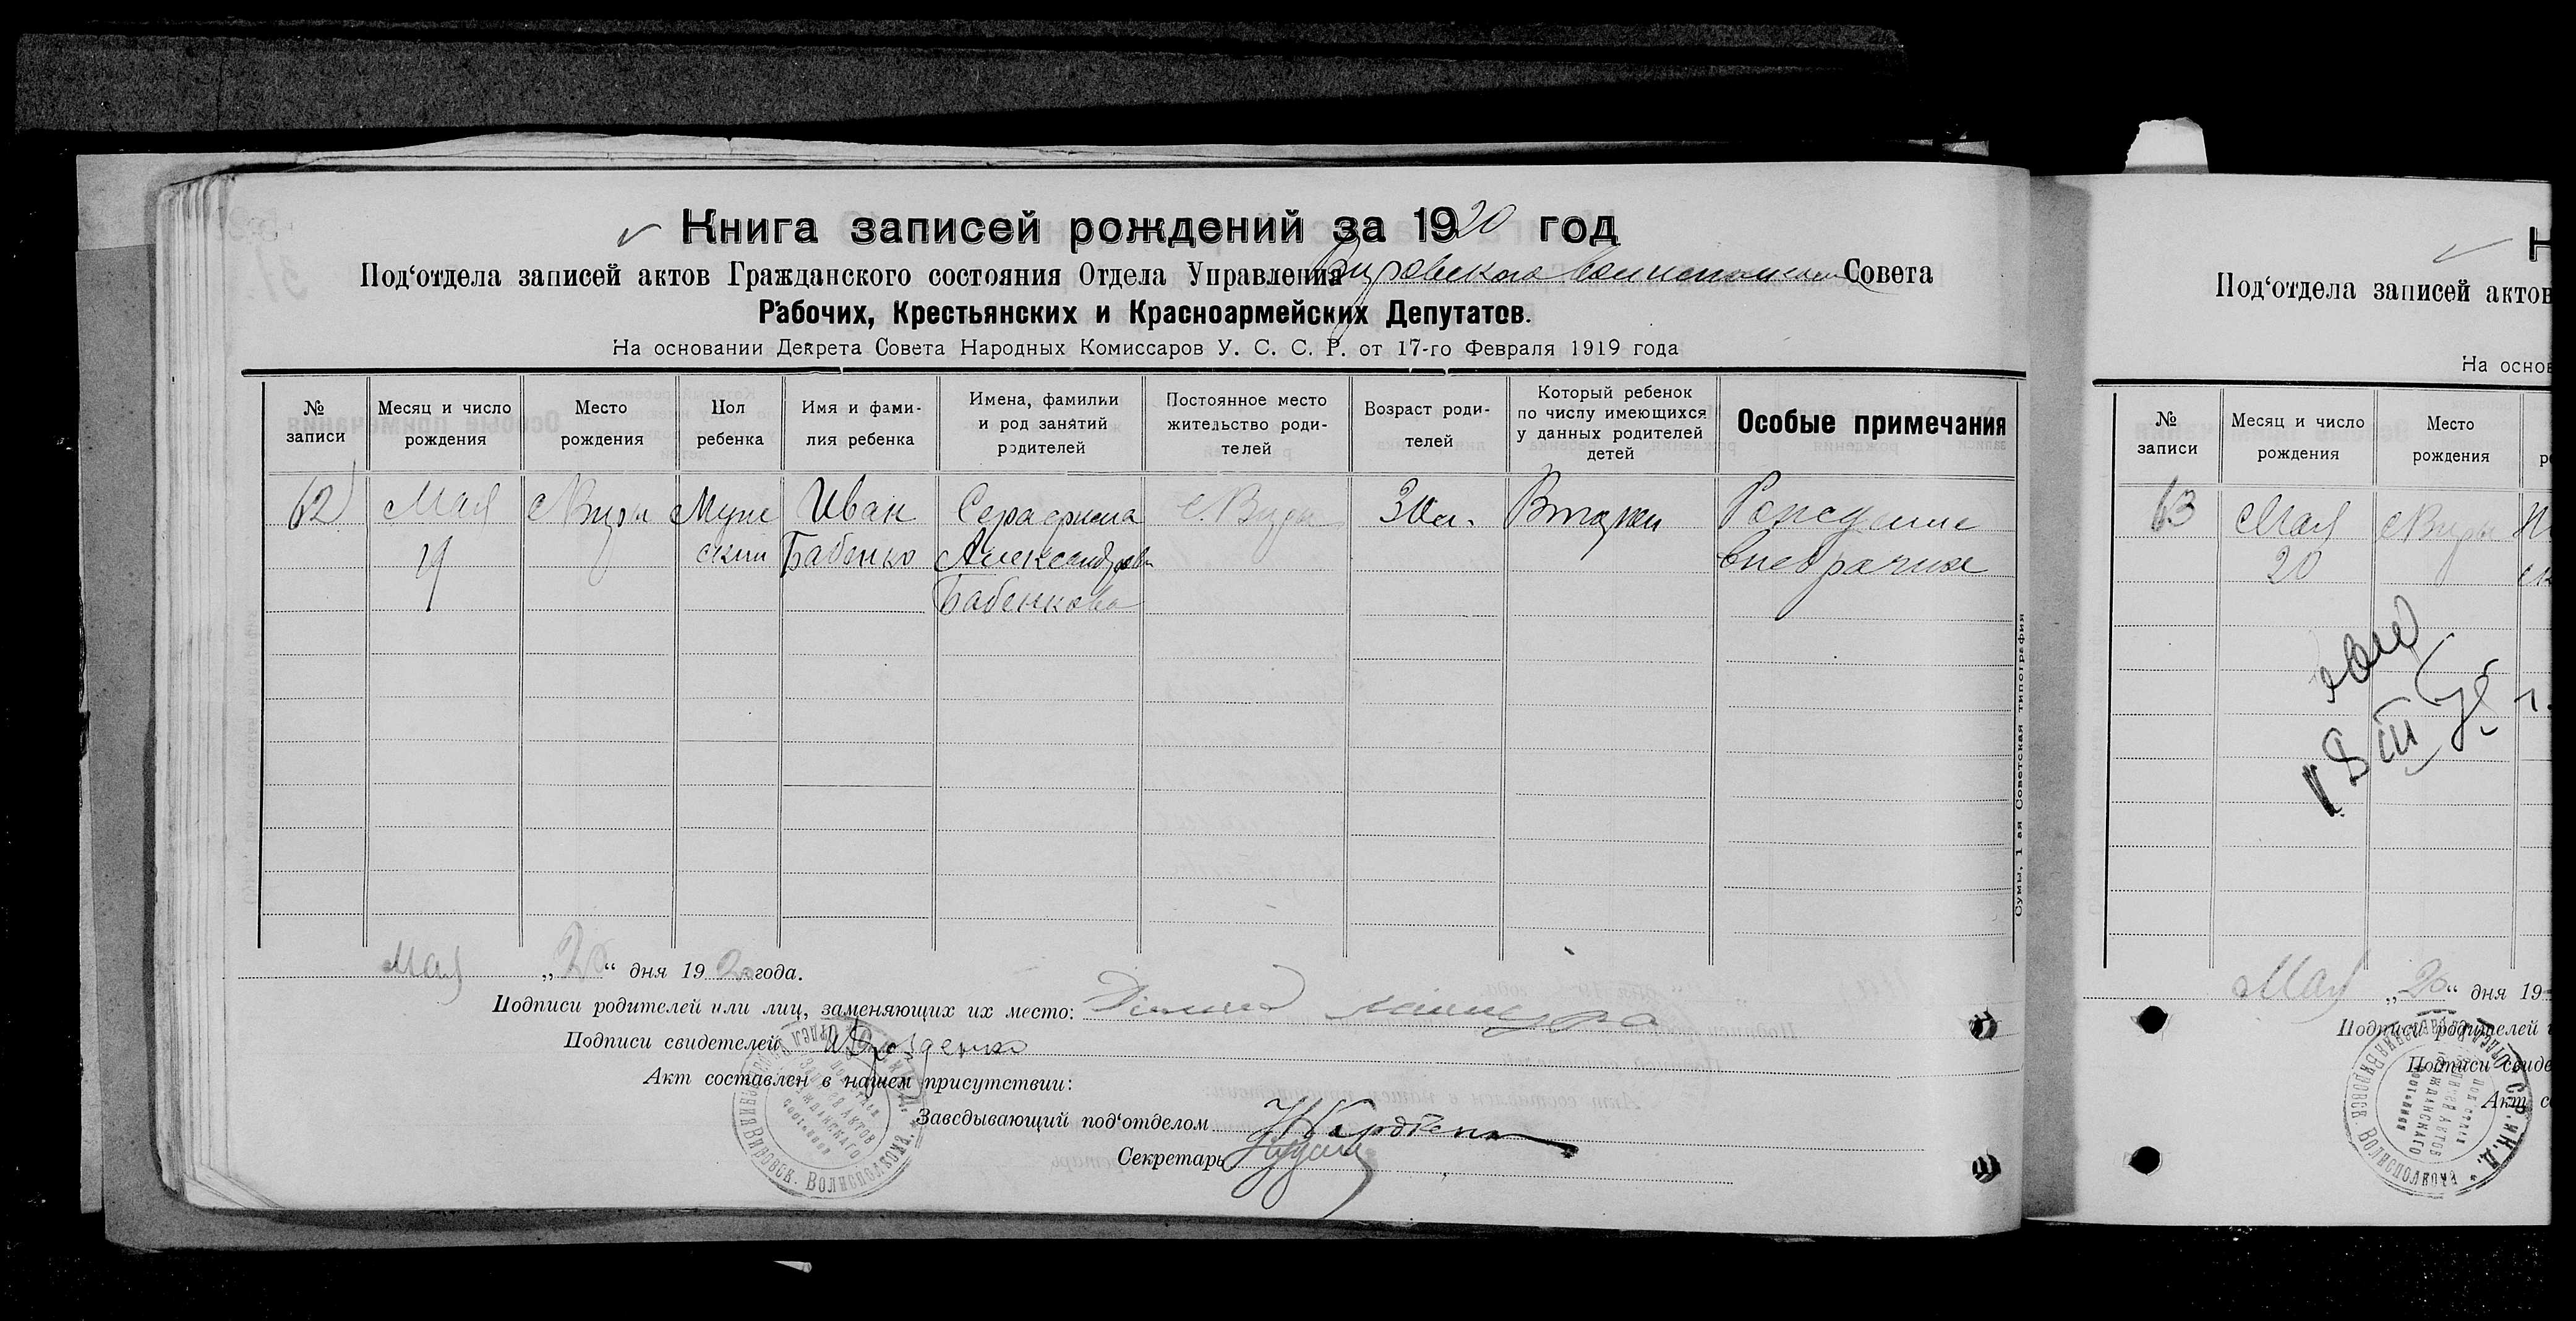 Книга записей рождений за 1920 год
Под‘отдела записей актов Гражданского состояния Отдела Управления Вировского волисполкома Совета
Рабочих, Крестьянских и Красноармейских Депутатов.
На основании Декрета Совета Народных Комиссаров У. С. С. Р. от 17-го Февраля 1919 года
№ записи
Месяц и число рождения
Место рождения
Пол ребенка
Имя и фамилия ребенка
Имена, фамилии и род занятий родителей
Постоянное место жительство родителей
Возраст родителей
Который ребенок по числу имеющихся у данных родителей детей
Особые примечания
62 Мая с. Виры Муж Иван Серафима с. Виры 30 л. Второй Рождение
19 ский Бабенко Александровна внебрачное
Бабенкова
Сумы, 1-ая Советская типография
Мая „20“ дня 1920 года.
Подписи родителей или лиц, заменяющих их место:
Подписи свидетелей Дрозденко
Акт составлен в нашем присутствии:
Заведывающий под‘отделом
Секретарь
Вировск. Волисполкома.
Записей актов
Гражданского
Под‘отдела записей актов
На основ
№ записи
Месяц и число рождения
Место рождения
63 Мая с. Виры
20
Мая „20“ дня 19
Подписи родителей
Подписи свиде
Акт со
Вировск. Волисполкома